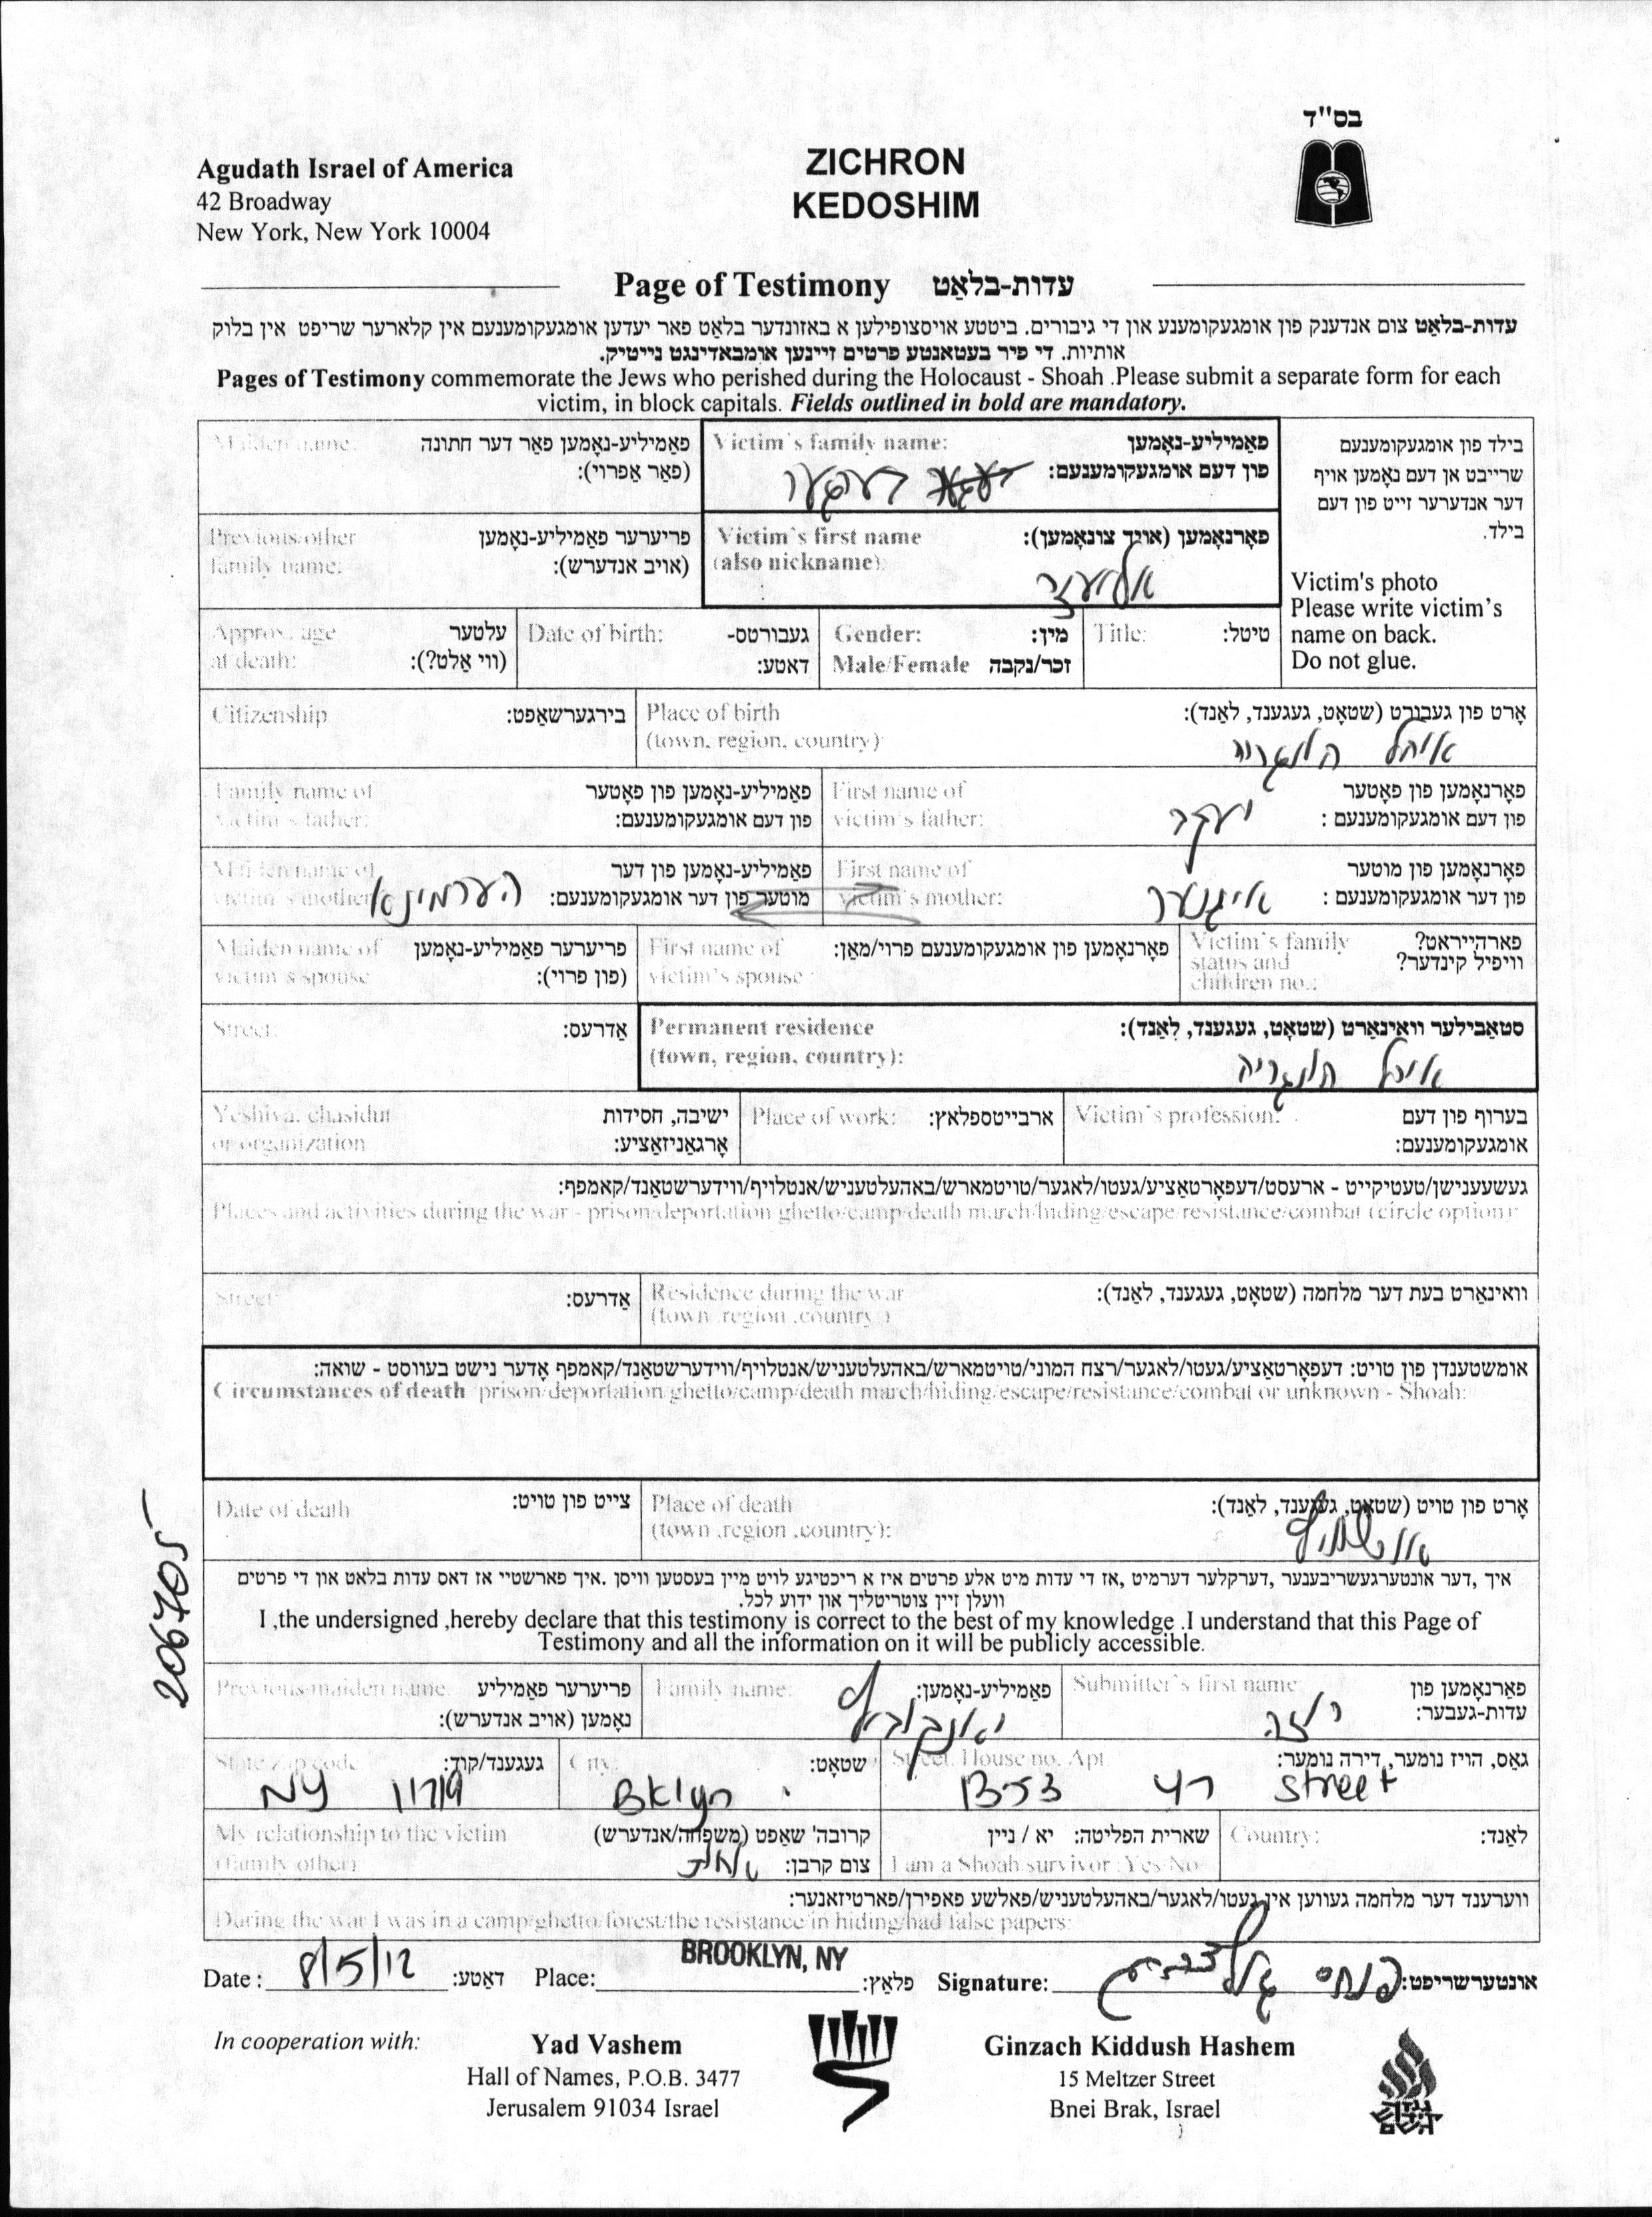 בס"ד
Agudath Israel of America
42 Broadway
New York, New York 10004
ZICHRON
KEDOSHIM
Page of Testimony עדות-בלאַט
עדות-בלאַט צום אנדענק פון אומגעקומענע און די גיבורים. ביטטע אויסצופילען א באזונדער בלאַט פאר יעדען אומגעקומענעם אין קלארער שריפט אין בלוק
אותיות. די פיר בעטאנטע פרטים זיינען אומבאדינגט נייטיק.
Pages of Testimony commemorate the Jews who perished during the Holocaust - Shoah .Please submit a separate form for each
victim, in block capitals. Fields outlined in bold are mandatory.
בילד פון אומגעקומענעם
שרייבט אן דעם נאָמען אויף
דער אנדערער זייט פון דעם
בילד.
Victim's photo
Please write victim's
name on back.
Do not glue.
Victim's family name: פאַמיליע-נאָמען
פון דעם אומגעקומענעם:
Maiden name: פאַמיליע-נאָמען פאַר דער חתונה
(פאַר אַפרוי):
Victim's first name פאָרנאָמען (אויך צונאָמען):
(also nickname):
אליעזר
Previous/other פריערער פאַמיליע-נאָמען
family name: (אויב אנדערש):
Title: טיטל:
Gender: מין:
Male/Female זכר/נקבה
Date of birth: געבורטס-
דאטע:
Approx. age עלטער
at death: (ווי אַלט?):
Place of birth אָרט פון געבורט (שטאָט, געגענד, לאַנד):
(town, region, country)
אויהל הונגריה
Citizenship בירגערשאַפט:
First name of פאָרנאָמען פון פאָטער
victim's father: פון דעם אומגעקומענעם :
יעקב
Family name of פאַמיליע-נאָמען פון פאָטער
victim's father: פון דעם אומגעקומענעם:
First name of פאָרנאָמען פון מוטער
victim's mother: פון דער אומגעקומענעם :
אייגנער
Maiden name of פאַמיליע-נאָמען פון דער
victim's mother מוטער פון דער אומגעקומענעם:
הערמינא
Victim's family פארהייראט?
status and וויפיל קינדער?
children no.:
First name of פאָרנאָמען פון אומגעקומענעם פרוי/מאַן:
victim's spouse :
Maiden name of פריערער פאַמיליע-נאָמען
victim s spouse (פון פרוי):
Permanent residence סטאַבילער וואוינאָרט (שטאָט, געגענד, לאַנד):
(town, region, country):
אויהל הונגריה
Street: אַדרעס:
Victim's profession: בערוף פון דעם
אומגעקומענעם:
Place of work: ארבייטספלאַץ:
Yeshiva, chasidut ישיבה, חסידות
or organization אָרגאַניזאַציע:
געשעענישן/טעטיקייט - ארעסט/דעפאָרטאַציע/געטו/לאגער/טויטמארש/באהעלטעניש/אנטלויף/ווידערשטאַנד/קאמפף:
Places and activities during the war - prison/deportation ghetto/camp/death march/hiding/escape/resistance/combat (circle option):
Residence during the war וואוינאָרט בעת דער מלחמה (שטאָט, געגענד, לאַנד):
(town .region .country:)
Street: אַדרעס:
אומשטענדן פון טויט: דעפאָרטאַציע/געטו/לאגער/רצח המוני/טויטמארש/באהעלטעניש/אנטלויף/ווידערשטאַנד/קאמפף אָדער נישט בעוווסט - שואה:
Circumstances of death prison/deportation/ghetto/camp/death march/hiding/escape/resistance/combat or unknown - Shoah:
Place of death אָרט פון טויט (שטאָט, געגענד, לאַנד):
(town .region .country):
אוישוויץ
Date of death צייט פון טויט:
איך ,דער אונטערגעשריבענער ,דערקלער דערמיט ,אז די עדות מיט אלע פרטים איז א ריכטיגע לויט מיין בעסטען וויסן .איך פארשטיי אז דאס עדות בלאט און די פרטים
וועלן זיין צוטריטליך און ידוע לכל.
I ,the undersigned ,hereby declare that this testimony is correct to the best of my knowledge .I understand that this Page of
Testimony and all the information on it will be publicly accessible.
Submitter's first name פאָרנאָמען פון
עדות-געבער:
Family name: פאַמיליע-נאָמען:
Previous/maiden name: פריערער פאַמיליע
נאָמען (אויב אנדערש):
Street, House no. Apt גאַס, הויז נומער, דירה נומער:
1353 47 street
City: שטאָט:
Bklyn
State Zip code געגענד/קוד:
NY 11219
Country: לאַנד:
שארית הפליטה: יא / ניין
I am a Shoah survivor :Yes/No
My relationship to the victim קרובה' שאַפט (משפחה/אנדערש)
(family other) צום קרבן:
ווערענד דער מלחמה געווען אין געטו/לאגער/באהעלטעניש/פאלשע פאפירן/פארטיזאנער:
During the war I was in a camp/ghetto/forest/the resistance/in hiding/had false papers:
Date : 8/5/12 דאַטע: Place: BROOKLYN, NY פלאַץ: Signature: פנחס אונטערשריפט:
206705
In cooperation with:
Yad Vashem
Hall of Names, P.O.B. 3477
Jerusalem 91034 Israel
Ginzach Kiddush Hashem
15 Meltzer Street
Bnei Brak, Israel